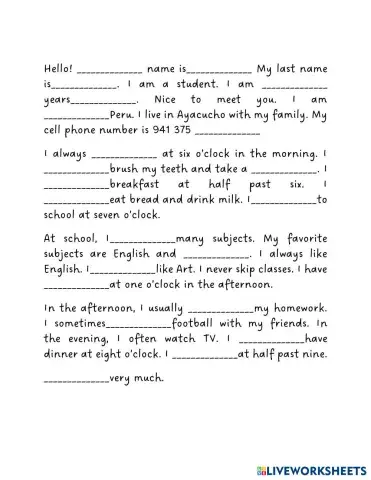 Hello! _____________ name is_____________ My last name
is_____________. I am a student. I am _____________
years_____________. Nice to meet you. I am
_____________Peru. I live in Ayacucho with my family. My
cell phone number is 941 375 _____________
I always _____________ at six o'clock in the morning. I
_____________brush my teeth and take a _____________. I
_____________breakfast at half past six. I
_____________eat bread and drink milk. I_____________to
school at seven o'clock.
At school, I_____________many subjects. My favorite
subjects are English and _____________. I always like
English. I_____________like Art. I never skip classes. I have
_____________at one o'clock in the afternoon.
In the afternoon, I usually _____________my homework.
I sometimes_____________football with my friends. In
the evening, I often watch TV. I _____________have
dinner at eight o'clock. I _____________at half past nine.
_____________very much.
LIVEWORKSHEETS